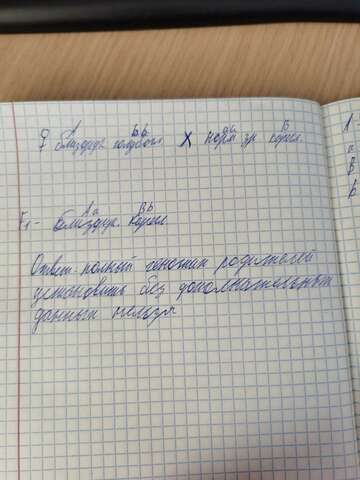 А bb aa В
♀ близорук. голубогл X норм зр карегл.
Аа Bb
F1 - близорук. карегл.
Ответ: полный генотип родителей
установить без дополнительных
данных нельзя
А
а
В
b